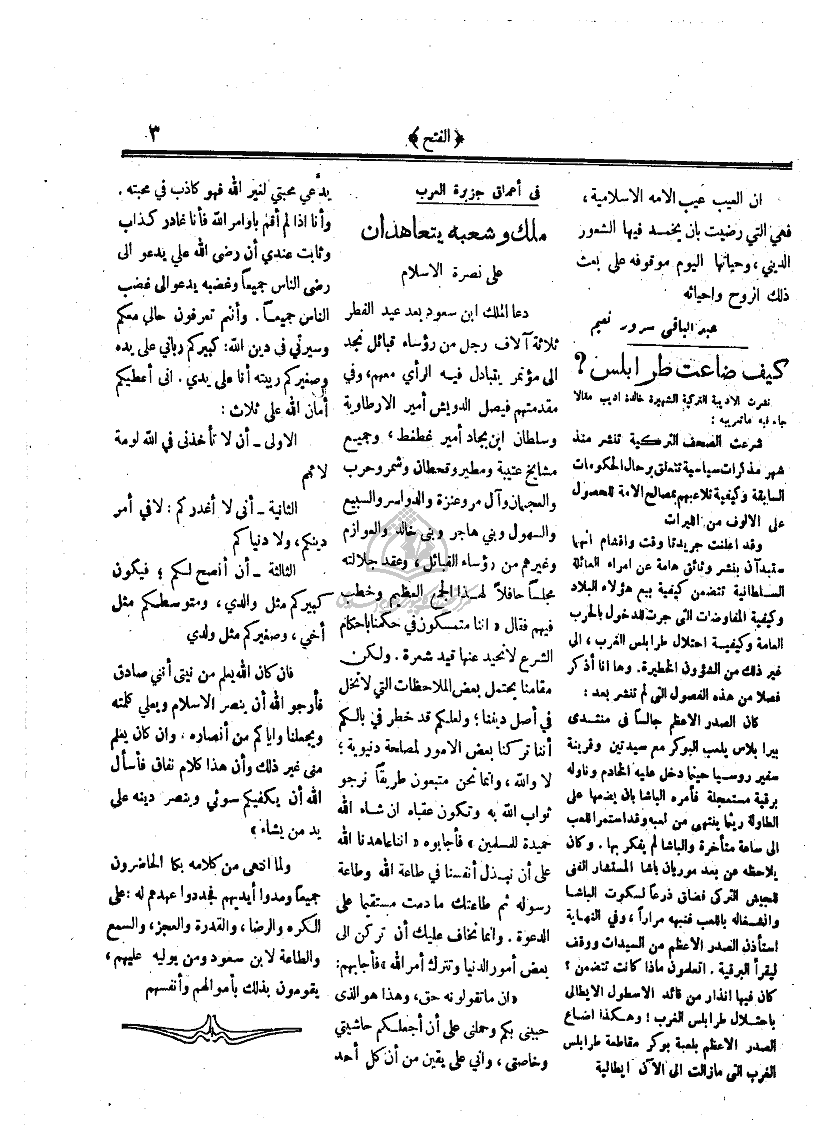 ﴿ الفتح ﴾
٣
ان العيب عيب الامه الاسلامية ،
فهي التي رضيت بان يخمد فيها الشعور
الديني ، وحياتها اليوم موقوفه على بعث
ذلك الروح واحيائه
عبد الباقي سرور نعيم
كيف ضاعت طرابلس ؟
نشرت الاديبة التركية الشهيرة خالدة اديب مقالا
جاء فيه ماتعريبه :
شرعت الصحف التركية تنشر منذ
شهر مذكرات سياسية تتعلق برجال الحكومات
السابقة وكيفية تلاعبهم بمصالح الامة للحصول
على الالوف من الليرات
وقد اعلنت جريدتا وقت واقشام انهما
ستبدآن بنشر وثائق هامة عن امراء العائلة
السلطانية تتضمن كيفية بيع هؤلاء البلاد
وكيفية المفاوضات التى جرت للدخول بالحرب
العامة وكيفية احتلال طرابلس الغرب ، الى
غير ذلك من الشؤون الخطيرة . وها انا أذكر
فصلا من هذه الفصول التى لم تنشر بعد :
كان الصدر الاعظم جالساً فى منتدى
بيرا بلاس يلعب البوكر مع سيدتين وقرينة
سفير روسيا حينما دخل عليه الخادم وناوله
برقية مستعجلة فأمره الباشا بان يضعها على
الطاولة ريثما ينتهى من لعبه وقد استمر اللعب
الى ساعة متأخرة والباشا لم يفكر بها . وكان
يلاحظه عن بعد موربان باشا المستشار الفنى
للجيش التركى فضاق ذرعاً لسكوت الباشا
وانشغاله باللعب فنبهه مراراً ، وفي النهاية
استأذن الصدر الاعظم من السيدات ووقف
ليقرأ البرقية . اتعلمون ماذا كانت تتضمن ؟
كان فيها انذار من قائد الاسطول الايطالى
باحتلال طرابلس الغرب ! وهكذا اضاع
الصدر الاعظم بلعبة بوكر مقاطعة طرابلس
الغرب التى مازالت الى الآن ايطالية
فى أعماق جزيرة العرب
ملك وشعبه يتعاهدان
على نصرة الاسلام
دعا الملك ابن سعود بعد عيد الفطر
ثلاثة آلاف رجل من رؤساء قبائل نجد
الى مؤتمر يتبادل فيه الرأي معهم، وفي
مقدمتهم فيصل الدويش أمير الارطاوية
وسلطان ابن بجاد أمير غطغط ، وجميع
مشايخ عتيبة ومطير وقحطان وشمر وحرب
والعجمان وآل مر وعنزة والدواسر والسبيع
والسهول وبني هاجر وبنى خالد والعوازم
وغيرهم من رؤساء القبائل ، وعقد جلالته
مجلساً حافلاً لهذا الجمع العظيم وخطب
فيهم فقال « اننا متمسكون في حكمنا باحكام
الشرع لانحيد عنها قيد شعرة . ولكن
مقامنا يحتمل بعض الملاحظات التي لاتخل
في أصل ديننا ؛ ولعلكم قد خطر في بالكم
أننا تركنا بعض الامور لمصلحة دنيوية ؛
لا والله ، وانما نحن متبعون طريقاً نرجو
ثواب الله به وتكون عقباه ان شاء الله
حميدة للمسلمين » فأجابوه « اننا عاهدنا الله
على أن نبذل أنفسنا في طاعة الله وطاعة
رسوله ثم طاعتك ما دمت مستقيما على
الدعوة . وانما نخاف عليك أن تركن الى
بعض أمور الدنيا وتترك أمر الله » فأجابهم:
« ان ماتقولونه حق ، وهذا هو الذى
حببنى بكم وحملنى على أن أجعلكم حاشيتي
وخاصتى ، واني على يقين من أن كل أحد
يدَّعي محبتي لغير الله فهو كاذب في محبته .
وأنا اذا لم أقم باوامر الله فأنا غادر كذاب
وثابت عندي أن رضى الله على يدعو الى
رضى الناس جميعاً وغضبه يدعو الى غضب
الناس جميعاً . وأنتم تعرفون حالي معكم
وسيرتي في دين الله: كبيركم رباني على يده
وصغيركم ربيته أنا على يدي . انى أعطيكم
أمان الله على ثلاث :
الاولى ــ أن لا تأخذنى في الله لومة
لائم
الثانية ــ أنى لا أغدركم : لا في أمر
دينكم، ولا دنياكم
الثالثة ــ أن أنصح لكم ؛ فيكون
كبيركم مثل والدي ، ومتوسطكم مثل
أخي ، وصغيركم مثل ولدي
فان كان الله يعلم من نيتى أنني صادق
فأرجو الله أن ينصر الاسلام ويعلي كلمته
ويجعلنا واياكم من أنصاره . وان كان يعلم
منى غير ذلك وأن هذا كلام نفاق فأسأل
الله أن يكفيكم سوئي وينصر دينه على
يد من يشاء »
ولما انتهى من كلامه بكا الحاضرون
جميعاً ومدوا أيديهم فجددوا عهدهم له : على
الكره والرضا ، والقدرة والعجز، والسمع
والطاعة لابن سعود ومن يوليه عليهم ،
يقومون بذلك بأموالهم وأنفسهم